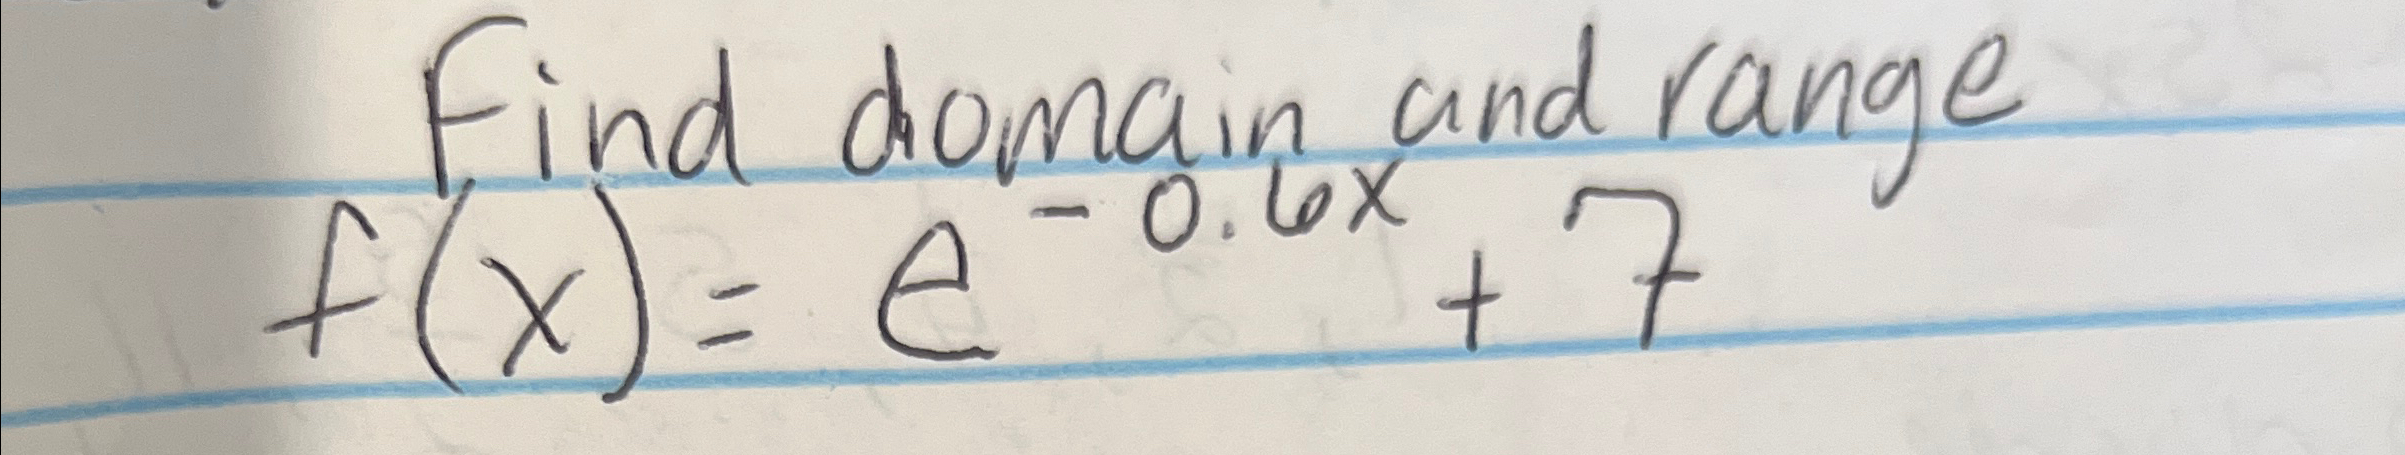 Find domain and range
f(x) = e^{-0.6x} + 7